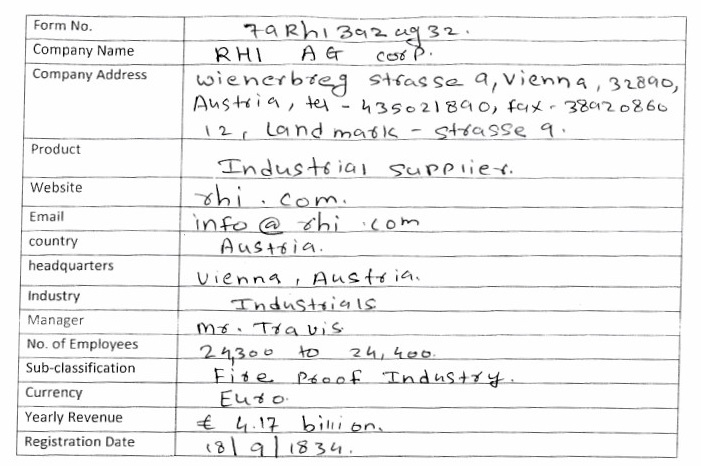 Form No. 79Rhi392ug32.
Company Name RHI AG corp.
Company Address wienerbreg strasse 9, Vienna, 32890,
Austria, tel - 435021890, fax - 38920860
12, Landmark - strasse 9.
Product Industrial supplier.
Website rhi.com.
Email info@rhi.com
country Austria.
headquarters Vienna, Austria.
Industry Industrials
Manager Mr. Travis.
No. of Employees 24,300 to 24,400.
Sub-classification Fire Proof Industry.
Currency Euro.
Yearly Revenue € 4.17 billion.
Registration Date 18/9/1834.